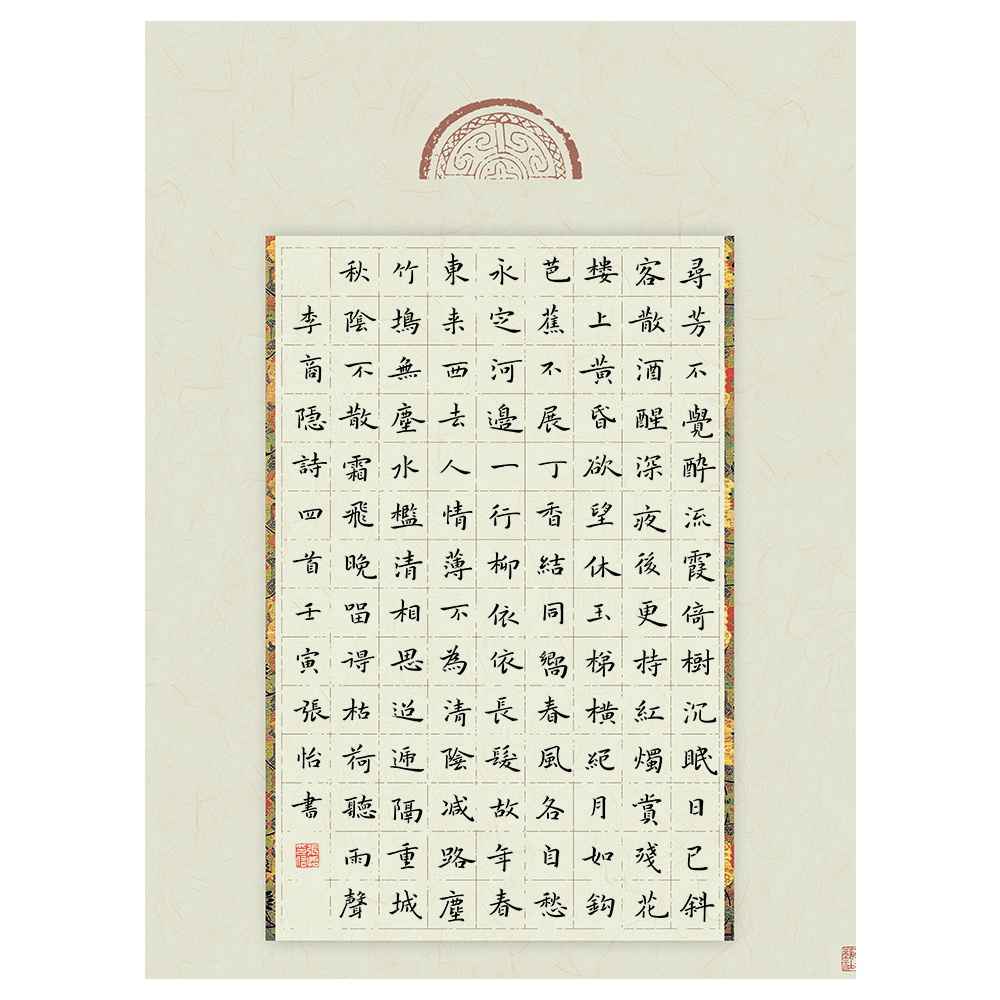 尋芳不覺酔流霞倚樹沉眠日已斜
客散酒醒深夜後更持紅燭賞殘花
楼上黄昏欲望休玉梯横絕月如鈎
芭蕉不展丁香結同嚮春風各自愁
永定河邊一行柳依依長髮故年春
東来西去人情薄不為清陰减路塵
竹塢無塵水檻清相思迢遞隔重城
秋陰不散霜飛晚留得枯荷聽雨聲
李商隱詩四首壬寅張怡書
張怡印信